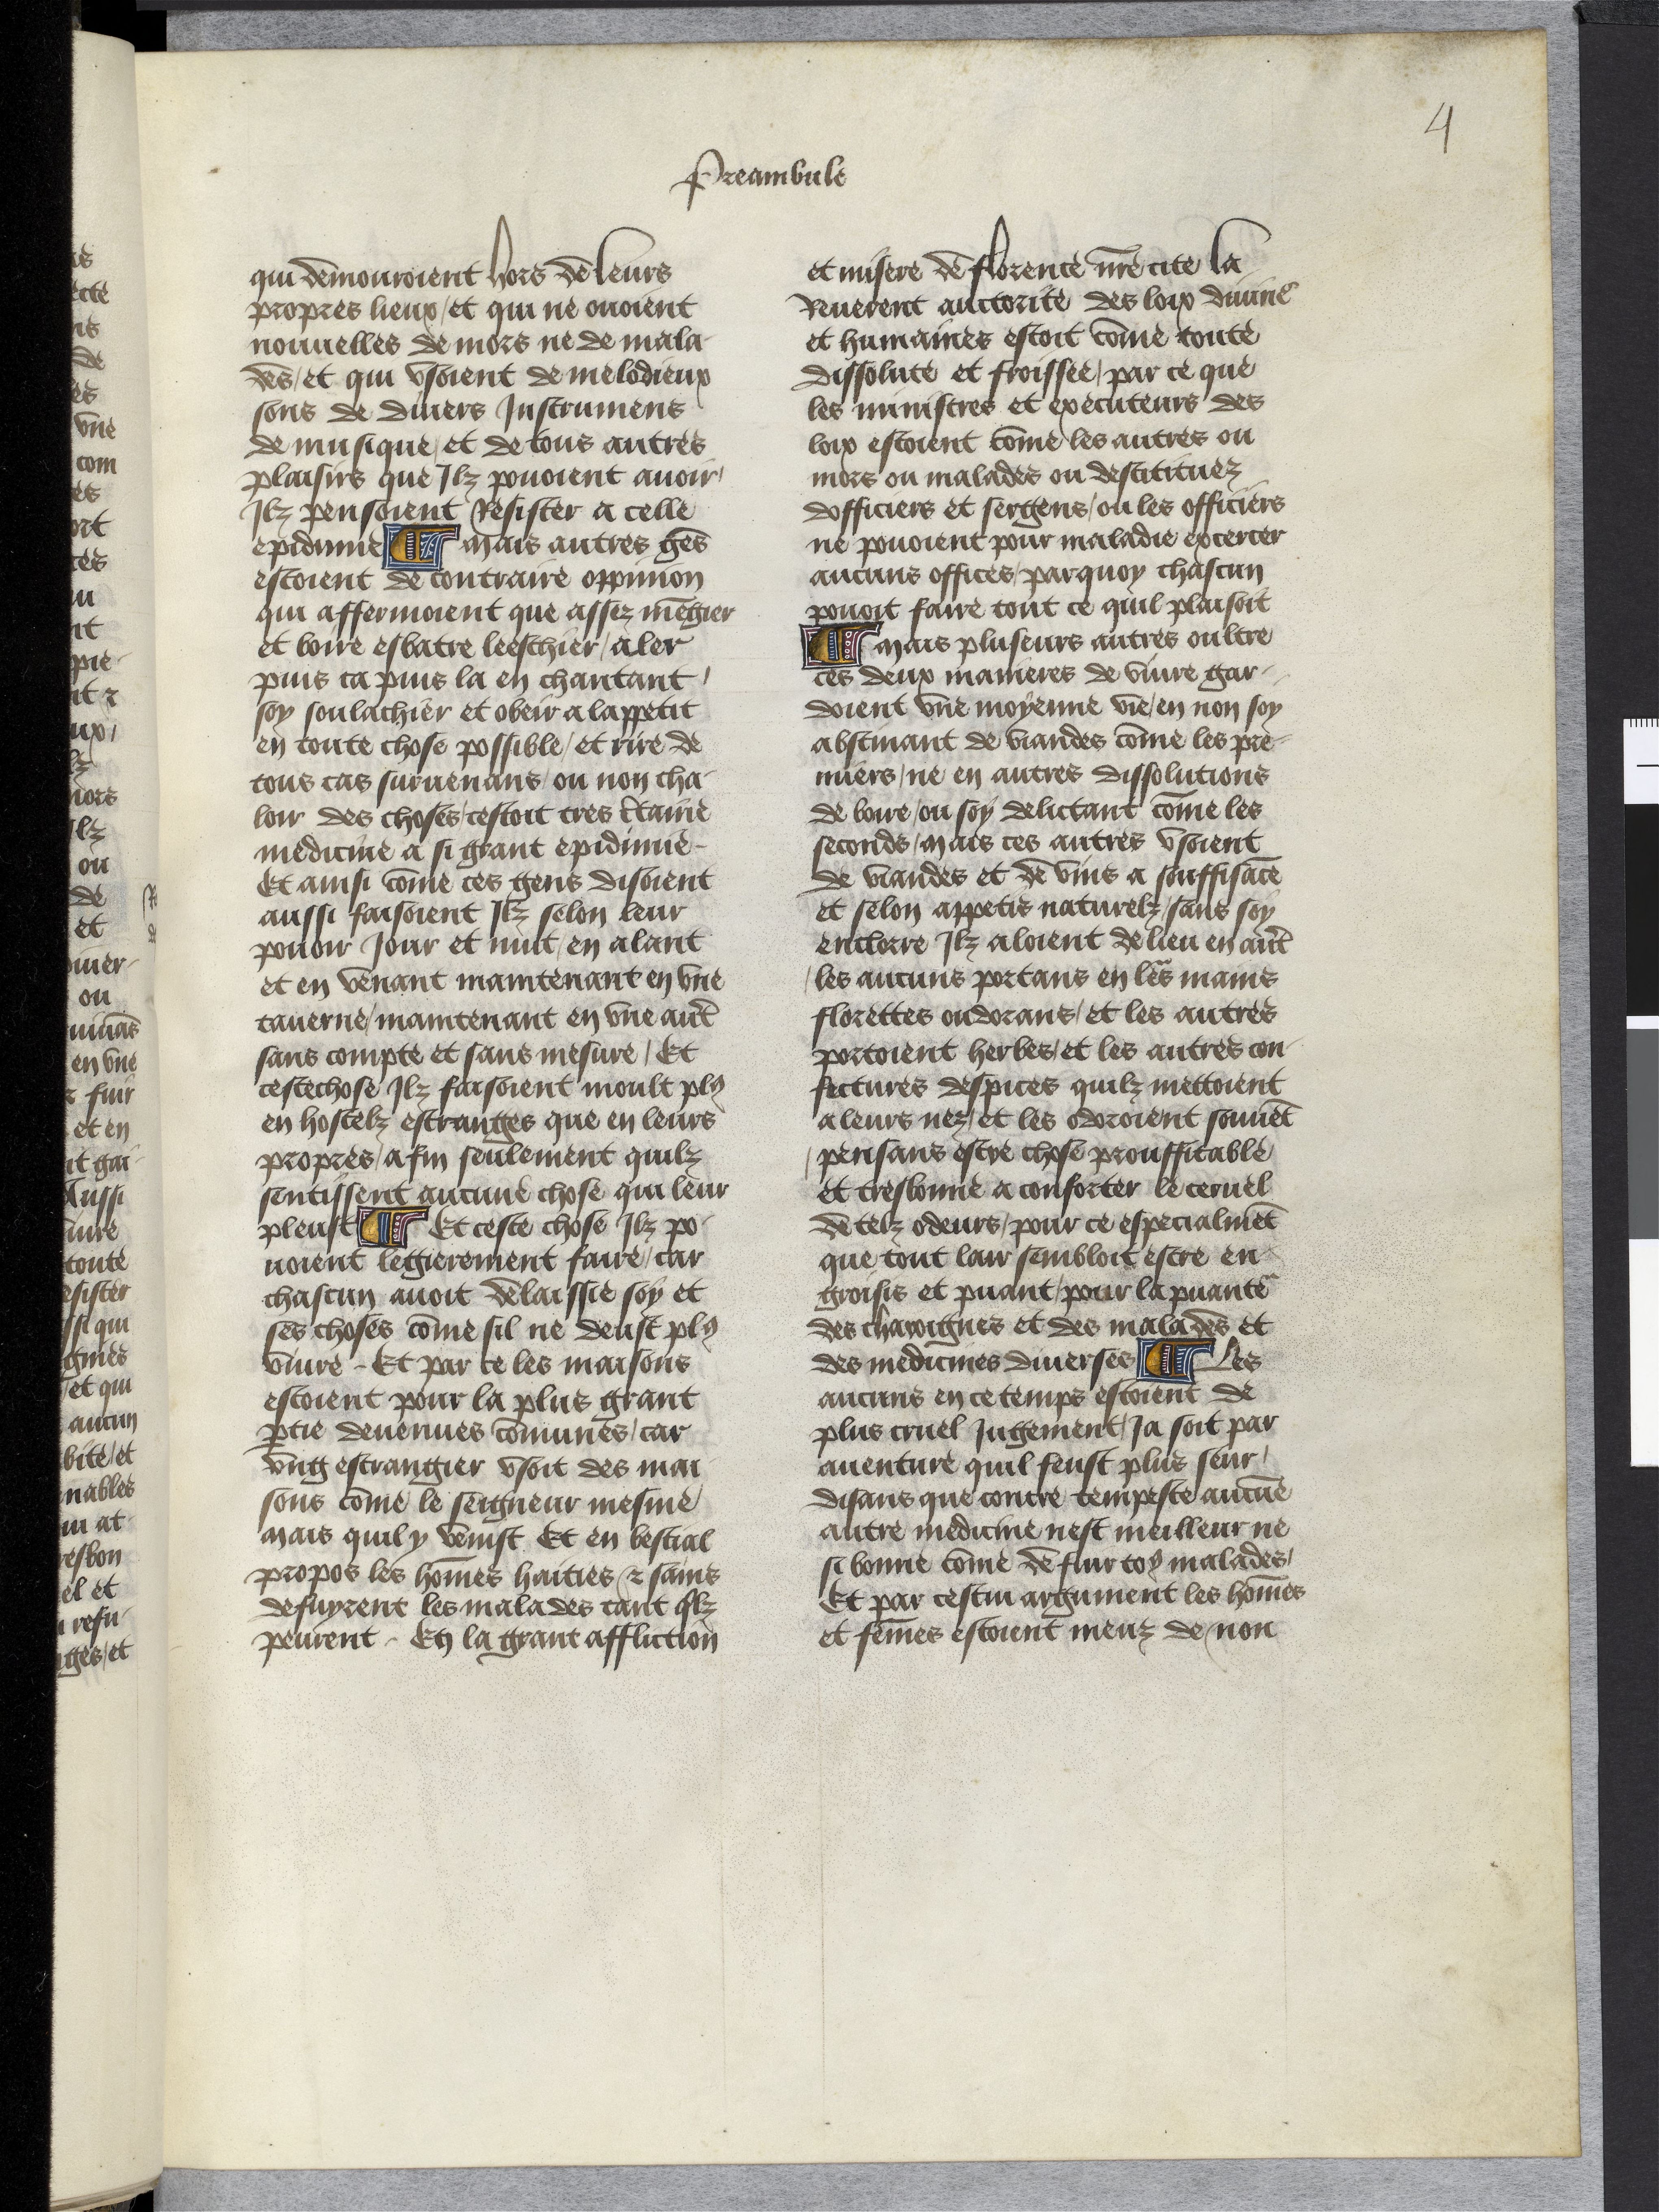 4
Preambule
qui demouroient hors de leurs
propres lieux/et qui ne ouoient
nouuelles de mors ne de mala-
des/et qui vsoient de melodieux
sons de diuers Instrumens
de musique/et de tous autres
plaisirs que Ilz pouoient auoir/
Ilz pensoient Resister a celle
epidimie ¶ mais autres ge̅s
estoient de contraire oppinion
qui affermoient que assez me̅gier
et boire esbatre leeschier/aler
puis ca puis la en chantant/
soy soulachier et obeir a lappetit
en toute chose possible/et rire de
tous cas suruenans/ou non cha-
loir des choses/cestoit tres c̅taine
medicine a si grant epidimie-
Et ainsi co̅me ces gens disoient
aussi faisoient Ilz selon leur
pouoir Jour et nuit/en alant
et en venant maintenant en vne
tauerne/maintenant en vne aut̅
sans compte et sans mesure/Et
cestechose Ilz faisoient moult plꝰ
en hostelz estranges que en leurs
propres/afin seulement quilz
sentissent aucune chose qui leur
pleust ¶ Et ceste chose Ilz po-
uoient legierement faire/car
chascun auoit delaissie soy et
ses choses co̅me sil ne deust plꝰ
viure-Et par ce les maisons
estoient pour la plus grant
ꝑtie deuenues co̅munes/car
vng estrangier vsoit des mai
sons co̅me le seigneur mesme/
mais quil y venist Et en bestial
propos les ho̅mes haities ⁊ sains
defuyrent les malades tant q̅lz
peurent-En la grant affliction
et misere de florence n̅re cite la
Reuerent auctorite des loix diuine
et humaines estoit co̅me toute
dissolute et froissee/par ce que
les ministres et executeurs des
loix estoient co̅me les autres ou
mors ou malades ou destitituez
dofficiers et sergens/ou les officiers
ne pouoient pour maladie excercer
aucuns offices/parquoy chascun
pouoit faire tout ce quil plaisoit
¶ mais pluseurs autres oultre
ces deux manieres de viure gar-
doient vne moyenne vie/en non soy
abstinant de viandes co̅me les pre-
miers/ne en autres dissolutions
de boire/ou soy delictant co̅me les
seconds/mais ces autres vsoient
de viandes et de vins a souffisa̅ce
et selon appetis naturelz/sans soy
enclorre Ilz aloient de lieu en aut̅
/les aucuns portans en le̅s mains
florettes oudorans/et les autres
portoient herbes/et les autres con-
fictures despices quilz mettoient
a leurs nez/et les odoroient souue̅t
/pensans estre chose prouffitable/
et tresbonne a conforter le ceruel
de telz odeurs/pour ce especialme̅t
que tout lair sembloit estre en-
groisis et puant/pour la puante
des charoignes et des malades et
des medicines diuerses ¶ Les
aucuns en ce temps estoient de
plus cruel Jugement/Ja soit par
auenture quil feust plus seur/
disans que contre tempeste aucu̅e
autre medicine nest meilleur ne
si bonne co̅me de fuir toꝰ malades/
Et par cestui argument les ho̅mes
et fe̅mes estoient meuz de non